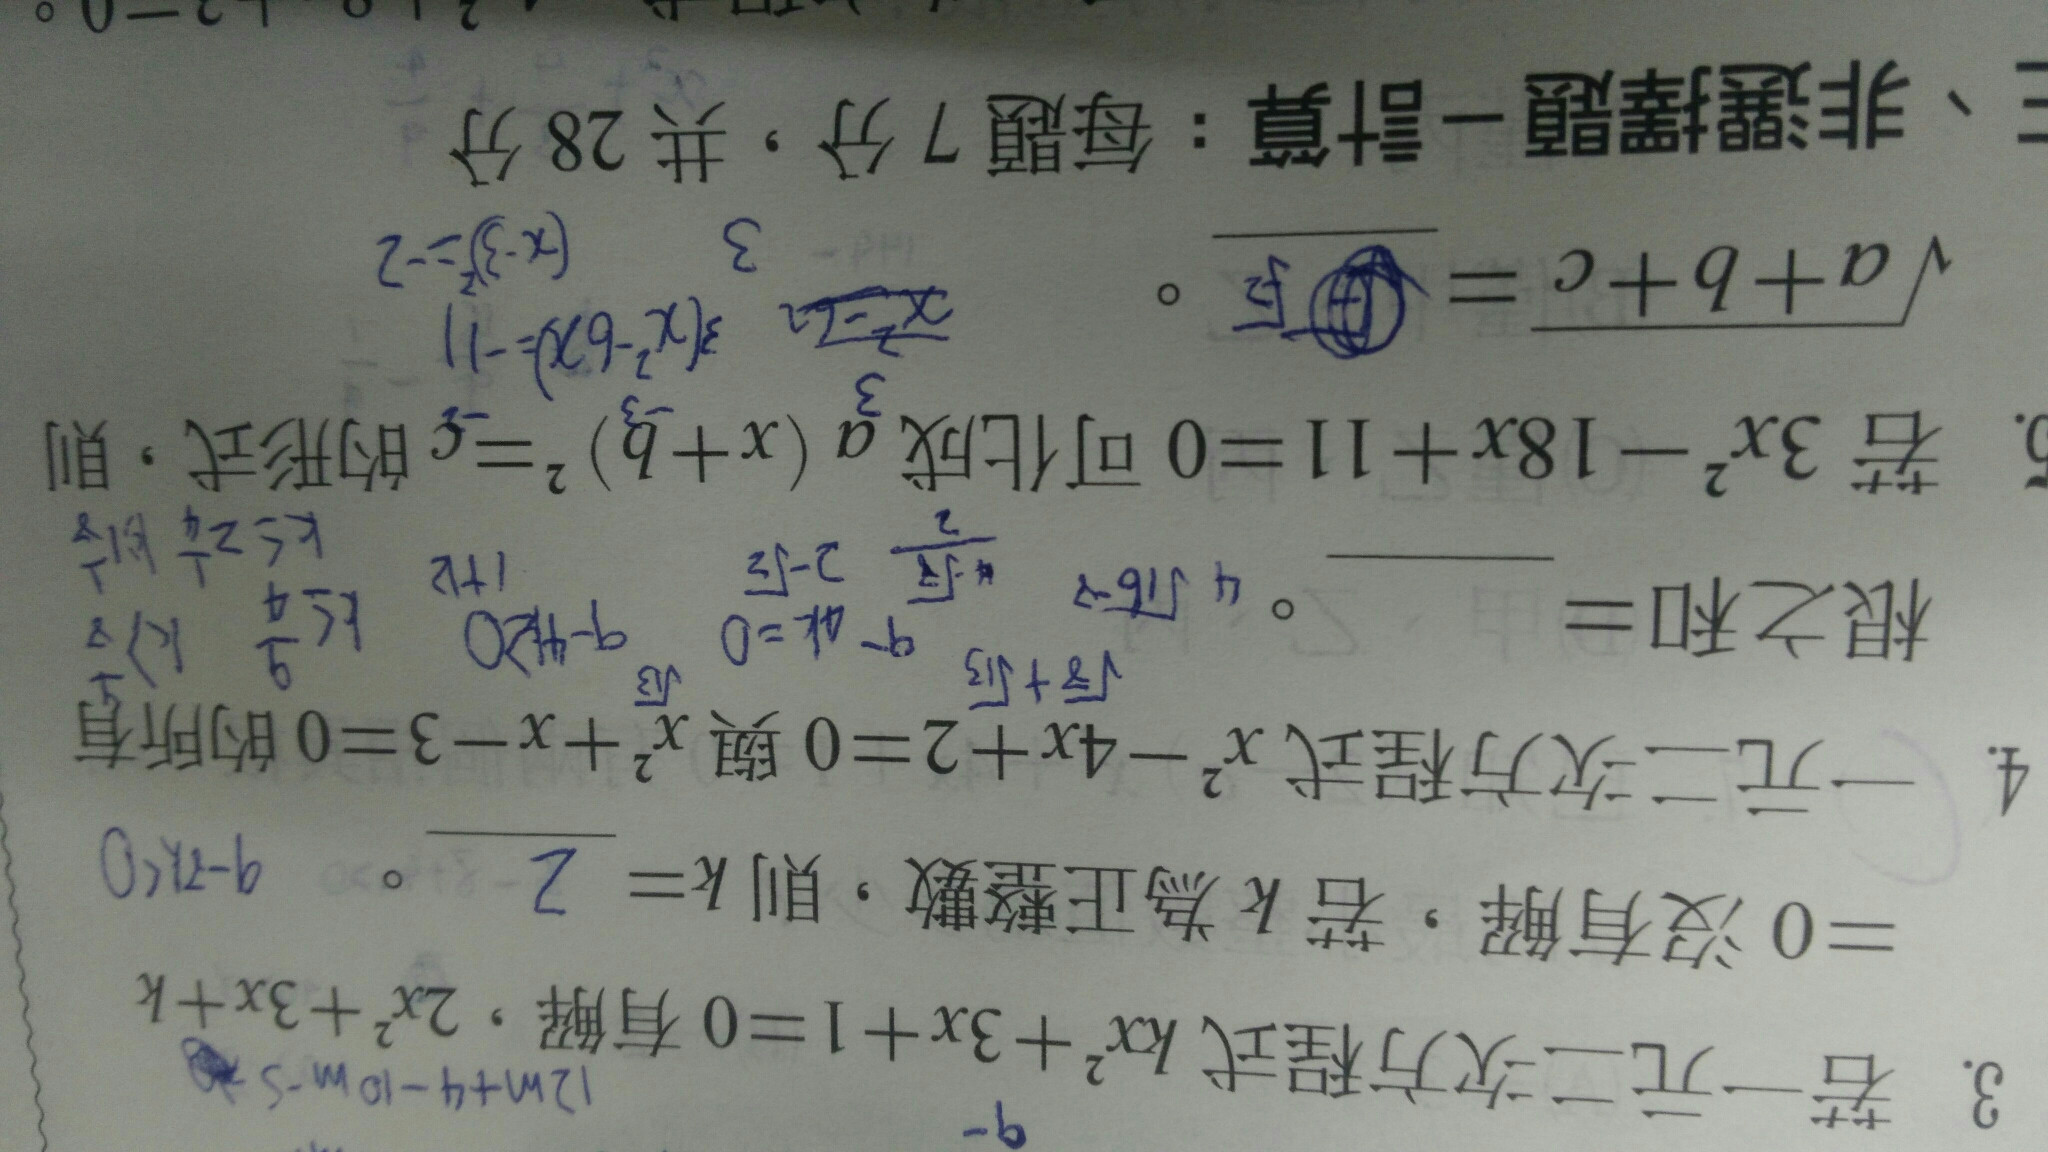 9-
12m+4-10m-5
3. 若一元二次方程式 kx²+3x+1=0 有解，2x²+3x+k
=0 沒有解，若 k 為正整數，則 k= 2 。 9-8k<0
4. 一元二次方程式 x²-4x+2=0 與 x²+x-3=0 的所有
√8+√13 √13
根之和= 。 4 √16-8 9-4k=0 9-4k≥0 k≤9/4 k>9/8
4-√8/2 2-√2 1+12 k≤2 1/4 k>1 1/8
5. 若 3x²-18x+11=0 可化成 a(x+b)²=c 的形式，則
3 -3
√a+b+c = √2 。 3(x²-6x)=-11
3 (x-3)²=-2
三、非選擇題－計算：每題 7 分，共 28 分